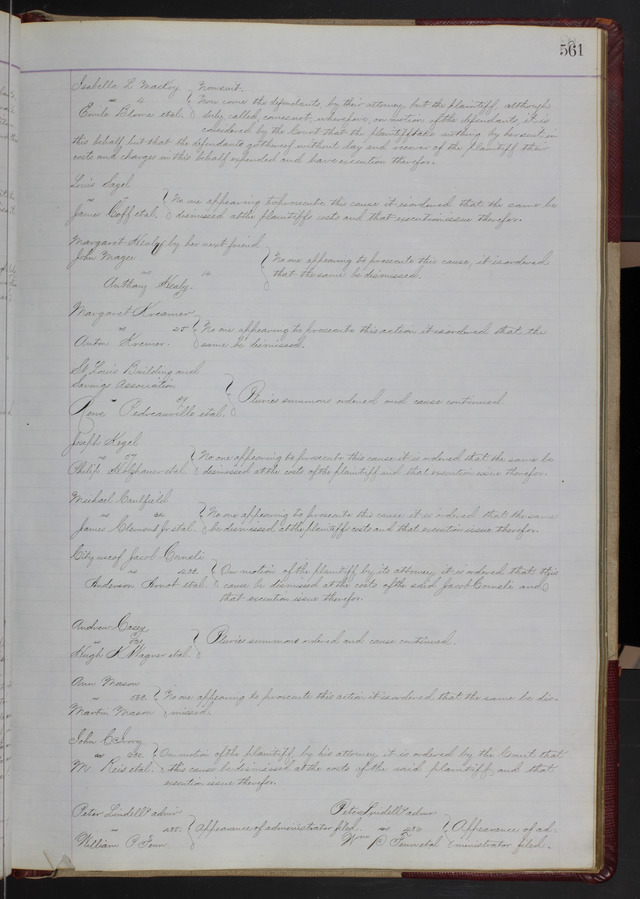 561
Isabella L. Mackoy } Nonsuit.
vs } Now come the defendants, by their attorney but the plaintiff, although
Emile Blome etal. } duly called, comes not, wherefore, on motion of the defendants, it is
considered by the Court that the plaintiff take nothing by her suit in
this behalf, but that the defendants go thereof without day and recover of the plaintiff their
costs and charges in this behalf expended and have execution therefor.
Louis Sagel
vs } No one appearing to prosecute this cause it is ordered that the same be
James Goff etal. } dismissed at the plaintiffs costs and that execution issue therefor.
Margaret Healy by her next friend
John Magee } No one appearing to prosecute this cause, it is ordered
vs } that the same be dismissed.
Anthony Healy.
Margaret Kreamer
vs 25 } No one appearing to prosecute this action it is ordered that the
Anton Kremer. } same be dismissed.
St Louis Building and
Savings Association
vs } Pluries summons ordered and cause continued
Rene Pedreauville etal.
Joseph Kegel
vs 27 } No one appearing to prosecute this cause it is ordered that the same be
Philip etal. } dismissed at the costs of the plaintiff and that execution issue therefor.
Michael Caulfield
vs } No one appearing to prosecute this cause it is ordered that the same
James Clemont Jr etal. } be dismissed at the plaintiff costs and that execution issue therefor.
City use of Jacob Corneli
vs } On motion of the plaintiff by its attorney it is ordered that this
Anderson Arnot etal. } cause be dismissed at the costs of the said Jacob Corneli and
that execution issue therefor.
Andrew Casey
vs } Pluries summons ordered and cause continued.
Hugh K. Wagner etal.
Ann Mason
vs } No one appearing to prosecute this action, it is ordered that the same be dis-
Martin Mason } missed.
John C. Ivory
vs } On motion of the plaintiff, by his attorney it is ordered by the Court that
M. Reis etal. } this cause be dismissed at the costs of the said plaintiff, and that
execution issue therefor.
Peter Lindell's admr
vs } Appearance of administrator filed.
William P. Fenn
Peter Lindell's admr
vs } Appearance of ad-
Wm P Fenn etal } ministrator filed.